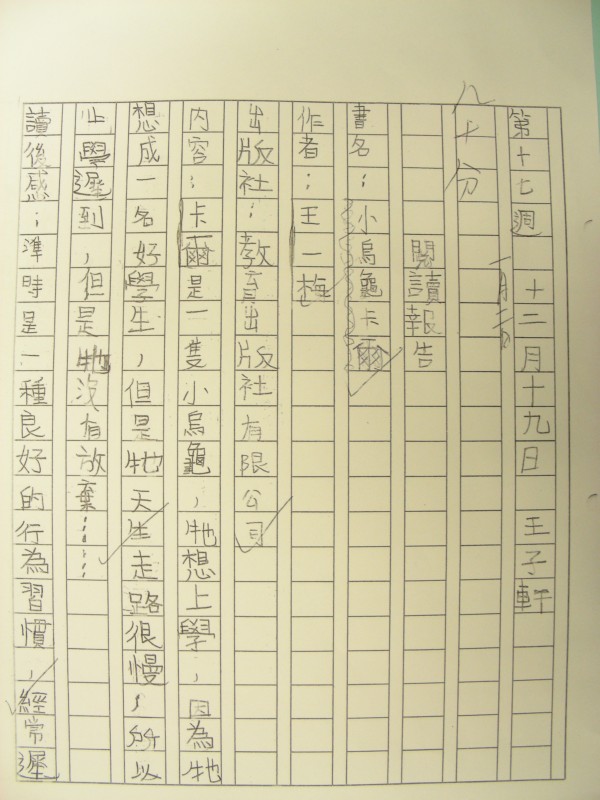 第十七週 十二月十九日 王子軒
八十分
一月二日
閱讀報告
書名：小烏龜卡爾
作者：王一梅
出版社：教育出版社有限公司
內容：卡爾是一隻小烏龜，牠想上學，因為牠
想成一名好學生，但是牠天生走路很慢，所以
上學遲到，但是牠沒有放棄……
讀後感：準時是一種良好的行為習慣，經常遲